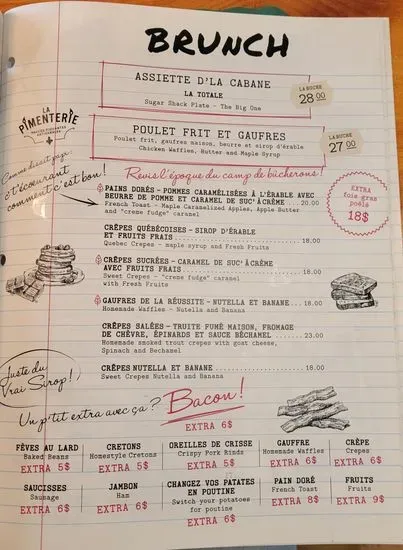 BRUNCH
ASSIETTE D'LA CABANE
LA TOTALE
Sugar Shack Plate - The Big One
LA BUCHE
28 00
LA PIMENTERIE
POULET FRIT ET GAUFRES
Poulet frit, gaufres maison, beurre et sirop d'érable
Chicken Waffles, Hutter and Maple Syrup
LA BUCHE
27 00
Comme disait papa:
c't'écoeurant
comment c'est bon!
Revis l'époque du camp de bûcherons!
PAINS DORÉS - POMMES CARAMÉLISÉES À L'ÉRABLE AVEC
BEURRE DE POMME ET CARAMEL DE SUC'À CRÈME ...20.00
French Toast - Maple Caramelized Apples, Apple Butter
and "creme fudge" caramel
EXTRA
foie gras
poêlé
18$
CRÊPES QUÉBÉCOISES - SIROP D'ÉRABLE
ET FRUITS FRAIS ...18.00
Quebec Crepes - maple syrup and Fresh Fruits
CRÊPES SUCRÉES - CARAMEL DE SUC'À CRÈME
AVEC FRUITS FRAIS ...18.00
Sweet Crepes - "creme fudge" caramel
with Fresh Fruits
GAUFRES DE LA RÉUSSITE - NUTELLA ET BANANE ...18.00
Homemade Waffles - Nutella and Banana
CRÊPES SALÉES - TRUITE FUMÉ MAISON, FROMAGE
DE CHÈVRE, ÉPINARDS ET SAUCE BÉCHAMEL ...23.00
Homemade smoked trout crepes with goat cheese,
Spinach and Bechamel
CRÊPES NUTELLA ET BANANE ...18.00
Sweet Crepes Nutella and Banana
Juste du
Vrai Sirop!
Un p'tit extra avec ça?
Bacon!
EXTRA 6$
FÊVES AU LARD
Baked Beans
EXTRA 5$
CRETONS
Homestyle Cretons
EXTRA 5$
OREILLES DE CRISSE
Crispy Pork Rinds
EXTRA 5$
GAUFFRE
Homemade Waffles
EXTRA 6$
CRÊPE
Crepes
EXTRA 6$
SAUCISSES
Sausage
EXTRA 6$
JAMBON
Ham
EXTRA 6$
CHANGEZ VOS PATATES
EN POUTINE
Switch your potatoes
for poutine
EXTRA 6$
PAIN DORÉ
French Toast
EXTRA 8$
FRUITS
Fruits
EXTRA 9$